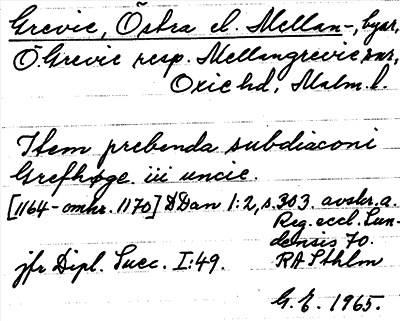 Grevie, Östra el. Mellan-, byar,
Ö. Grevie resp. Mellangrevie snr,
Oxie hd, Malm. l.
Item prebenda subdiaconi
Grefhøge. iii uncie.
[1164 - omkr. 1170] DDan 1:2, s. 303. avskr. a.
Reg. eccl. Lun-
densis 70.
jfr Dipl. Suec. I:49. RA Sthlm
G. E. 1965.